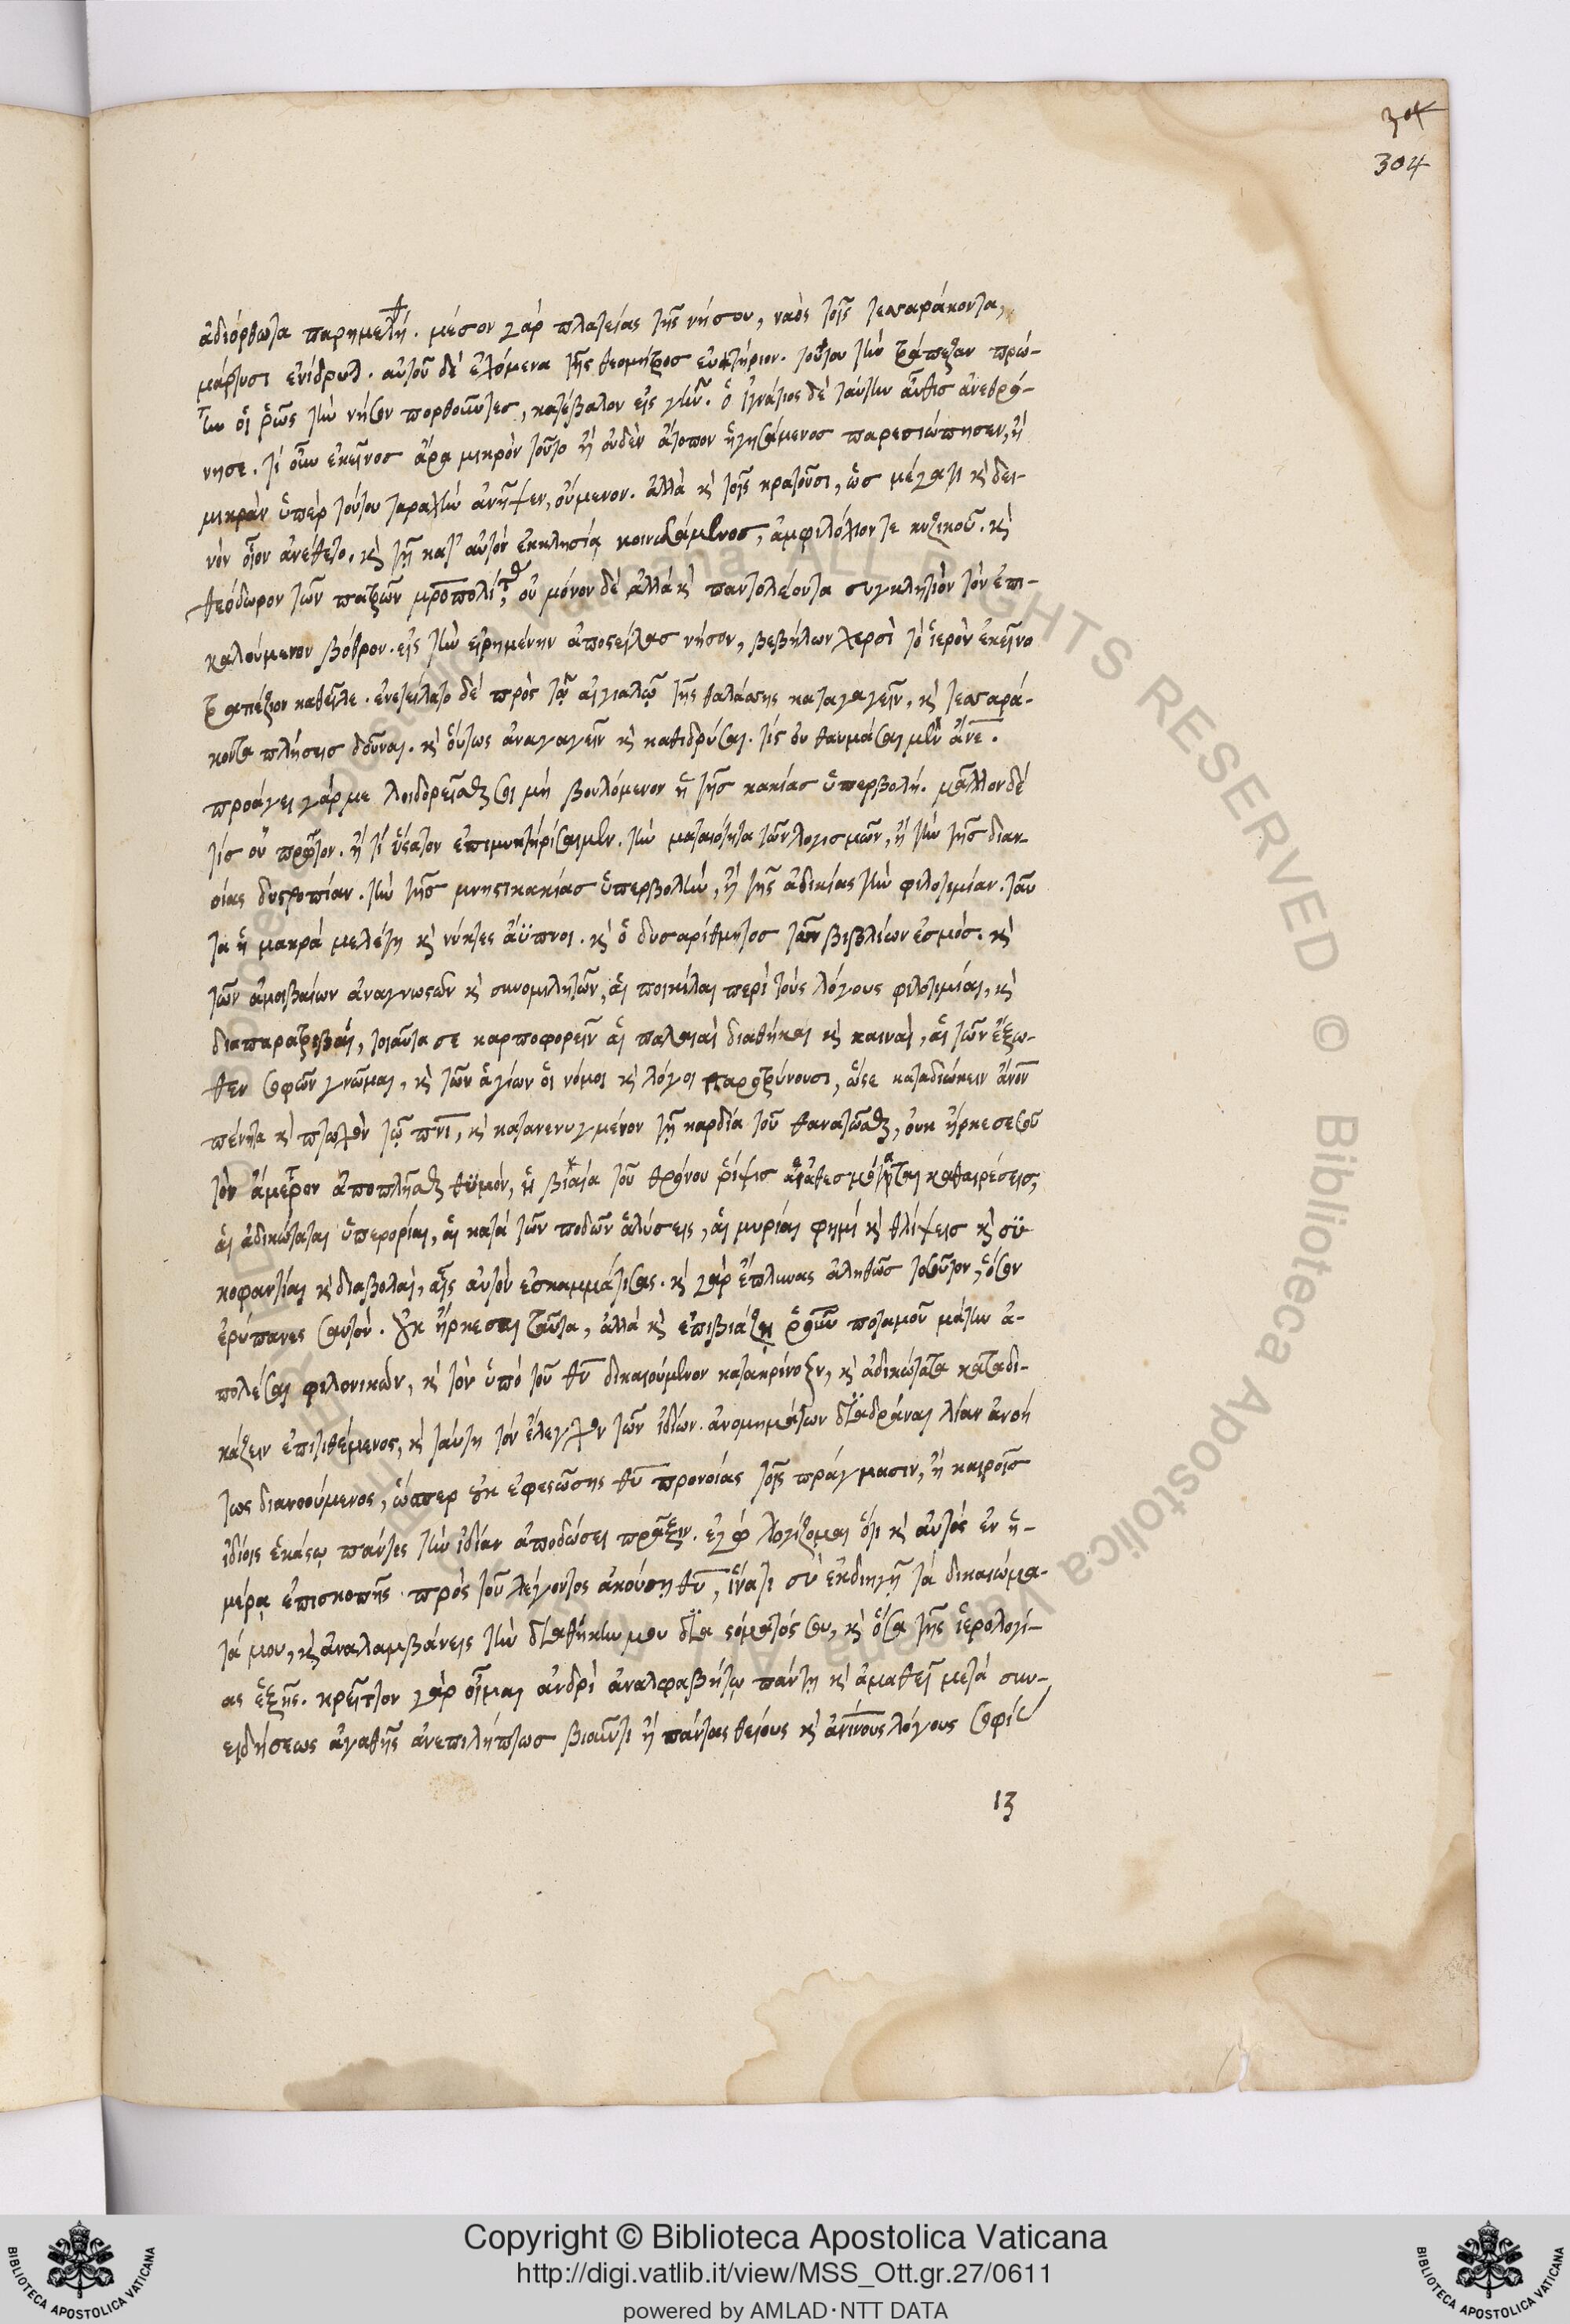 304
304
ἀδιόρθωτα παρημελή. μέσον γὰρ πλατείας τῆς νήσου, ναὸς τοῖς τεσσαράκοντα,
μάρτυσι ἐνίδρυτ. αὐτοῦ δὲ ἐχόμενα τῆς θεομήτρος εὐκτήριον. τούτου τὴν τράπεζαν πρώ-
την οἱ ῥῶς τὴν νῆσον πορθοῦντες, κατέβαλον εἰς γῆν. ὁ ἰγνάτιος δὲ ταύτην αὖθις ἀνεθρό-
νησε. τί οὖν ἐκεῖνος ἄρα μικρὸν τοῦτο ἢ οὐδὲν ἄτοπον ἡγησάμενος παρεσιώπησεν, ἢ
μικρὰν ὑπὲρ τούτου ταραχὴν ἀνῆψεν, οὐμενον. ἀλλὰ κὶ τοῖς κρατοῦσι, ὡς μέγα τι κὶ δει-
νὸν οἷον ἀνέθετο. κὶ τῇ κατ' αὐτὸν ἐκκλησίᾳ κοινωσάμενος, ἀμφιλόχιον τε κυζικοῦ. κὶ
θεόδωρον τῶν πατρῶν μροπολίτ, οὐ μόνον δὲ ἀλλὰ κὶ παντολέοντα συγκλητιὸν τὸν ἐπι-
καλούμενον βόθρον. εἰς τὴν εἰρημένην ἀποστείλας νῆσον, βεβήλων χερσὶ τὸ ἱερὸν ἐκεῖνο
τραπέζιον καθεῖλε. ἐνετείλατο δὲ πρὸς τῷ αἰγιαλῷ τῆς θαλάσσης καταγαγεῖν, κὶ τεσσαρά-
κοντα πλήσεις δοῦναι. κὶ οὕτως ἀναγαγεῖν κὶ καθιδρύσαι. τίς οὐ θαυμάσαι μὲν ἄνε.
προάγει γάρ με λοιδορεῖσθαι σοι μὴ βουλόμενον ἡ τῆς κακίας ὑπερβολή. μᾶλλον δὲ
τίς οὐ πρῶτον. ἢ τί ὕστατον ἐπιμυκτηρίσαιμεν. τὴν ματαιότητα τῶν λογισμῶν, ἢ τὴν τῆς διαν-
οίας δυστροπίαν. τὴν τῆς μνησικακίας ὑπερβολὴν, ἢ τῆς ἀδικίας τὴν φιλοτιμίαν. ταῦ
τα ἡ μακρὰ μελέτη κὶ νύκτες ἄϋπνοι. κὶ ὁ δυσαρίθμητος τῶν βιβλίων ἑσμός. κὶ
τῶν ἀμοιβαίων ἀναγνωστῶν κὶ συνομιλητῶν, αἱ ποικίλαι περὶ τοὺς λόγους φιλοτιμίαι, κὶ
διαπαρατριβαί, τοιαῦτα σε καρποφορεῖν αἱ παλαιαὶ διαθῆκαι κὶ καιναὶ, αἱ τῶν ἔξω-
θεν σοφῶν γνῶμαι, κὶ τῶν ἁγίων οἱ νόμοι κὶ λόγοι παροτρύνουσι, ὥστε καταδιώκειν ἄνον
πένητα κὶ πτωχὸν τῷ πνι, κὶ κατανενυγμένον τῇ καρδίᾳ τοῦ θανατῶσαι, οὐκ ἤρκεσε σοῦ
τὸν ἄμετρον ἀποπλῆσαι θϋμὸν, ἡ βιαία τοῦ θρόνου ῥίψις αἱ ἀθεσμόταται καθαιρέσεις,
αἱ ἀδικώταται ὑπερορίαι, αἱ κατὰ τῶν ποδῶν ἁλύσεις, αἱ μυρίαι φημὶ κὶ θλίψεις κὶ σϋ
κοφαντίαι κὶ διαβολαὶ, αἷς αὐτὸν ἐσκαμμάτισας. κὶ γὰρ ἔπλυνας ἀληθῶς τοσοῦτον, ὅσον
ἐρύπανες σαυτόν. οὐκ ἤρκεσαι ταῦτα, ἀλλὰ κὶ ἐπιβιάζῃ ῥοῦν ποταμοῦ μάτην ἀ-
πολέσαι φιλονικῶν, κὶ τὸν ὑπὸ τοῦ θυ δικαιούμενον κατακρίνειν, κὶ ἀδικώτατα καταδι-
κάζειν ἐπιτιθέμενος, κὶ ταύτη τὸν ἔλεγχον τῶν ἰδίων ἀνομημάτων διαδράναι λίαν ἀνοή
τως διανοούμενος, ὥσπερ οὐκ ἐφεστώσης θυ προνοίας τοῖς πράγμασιν, ἢ καιροῖς
ἰδίοις ἑκάστῳ πάντες τὴν ἰδίαν ἀποδώσει πρᾶξιν. ἐγὼ λογίζομαι ὅτι κὶ αὐτὸς ἐν ἡ-
μέρᾳ ἐπισκοπῆς πρὸς τοῦ λέγοντος ἀκούσῃ θυ, ἵνα τί σὺ ἐκδιηγῇ τὰ δικαιώμα-
τά μου, κὶ ἀναλαμβάνεις τὴν διαθήκην μου διὰ στόματός σου, κὶ ὅσα τῆς ἱερολογί-
ας ἑξῆς. κρεῖττον γὰρ οἶμαι ἀνδρὶ ἀναλφαβήτῳ πάντῃ κὶ ἀμαθεῖ μετὰ συν-
ειδήσεως ἀγαθῆς ἀνεπιλήπτως βιοῦντι ἢ πάντας θείους κὶ ἀνίνους λόγους σοφίσ
13
Copyright © Biblioteca Apostolica Vaticana
http://digi.vatlib.it/view/MSS_Ott.gr.27/0611
powered by AMLAD·NTT DATA